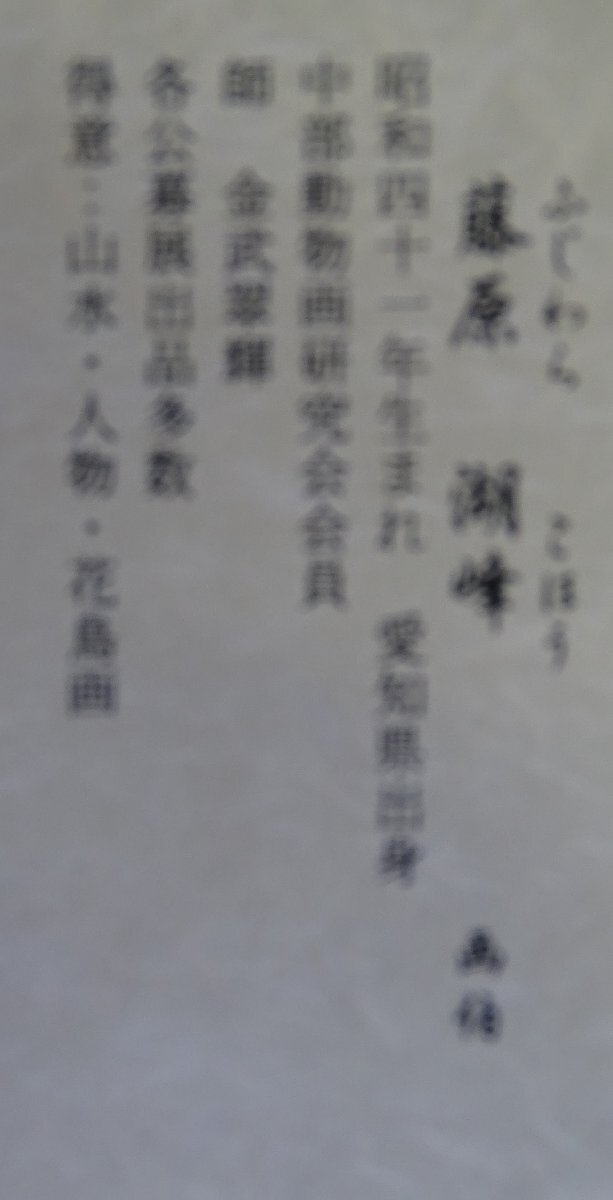 ふじわら こほう
藤原 湖峰 画伯
昭和四十一年生まれ 愛知県出身
中部動物画研究会会員
師 金武翠輝
各公募展出品多数
得意:山水・人物・花鳥画